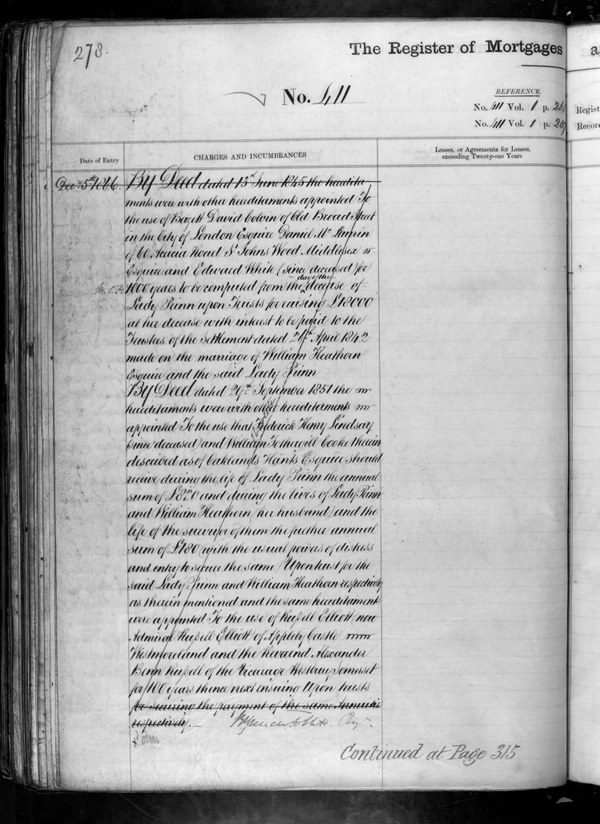 278
The Register of Mortgages
a
No. 411
REFERENCE.
No. 411 Vol. 1 p.
No. 411 Vol. 1 p.
Regist
Record
Date of Entry
CHARGES AND INCUMBRANCES
Leases, or Agreements for Leases, exceeding Twenty-one Years
Decr 5th 1866. By Deed dated 13th June 1845 the heredita
ments were with other hereditaments appointed To
the use of David Colvin of Old Broad Street
in the City of London Esquire Daniel
of 60 Acacia Road St Johns Wood Middlesex
Esquire and Edward White (since deceased) for
1000 years to be computed from the day of the decease of
Lady upon Trusts for raising £12000
at her decease with interest to be paid to the
Trustees of the Settlement dated April 1842
made on the marriage of William Heathorn
Esquire and the said Lady
By Deed dated 29th September 1851 the
hereditaments were with other hereditaments
appointed To the use that Frederick Henry Lindsay
(since deceased) and William Cooke therein
described as of Oaklands Hants Esquire should
receive during the life of Lady the annual
sum of £820 and during the lives of Lady
and William Heathorn (her husband) and the
life of the survivor of them the further annual
sum of £180 with the usual powers of distress
and entry to secure the same Upon trust for the
said Lady and William Heathorn respectively
as therein mentioned and the same hereditaments
were appointed To the use of Russell Elliott now
Admiral Russell Elliott of Appleby Castle
Westmoreland and the Reverend Alexander
Benn Russell of the Vicarage Westbury Somerset
for 100 years thence next ensuing Upon trusts
for securing the payment of the same Annuities
respectively.
Continued at Page 315